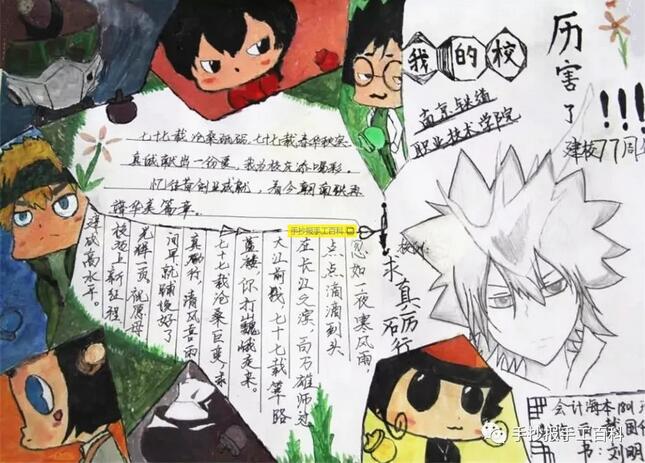 厉害了
我的校
!!!
南京铁道
职业技术学院
建校77周
七十七载沧桑砥砺,七十七载春华秋实
真诚献出一份爱,我为校庆添喝彩。
忆往昔创业成就,看今朝南铁再
谱华美篇章。
手抄报手工百科
校训:
求真厉行
忽如一夜寒风雨,
点点滴滴到头
在长江之滨,百万雄师过
大江前线,七十七载筚路
蓝缕,你打巍峨走来。
七十七载沧桑巨变,求
真励行,清风喜雨
润早就铺俊好了
光辉一页,祝愿母
校踏上新红程
建成高水平。
会计
书:刘明
手抄报手工百科